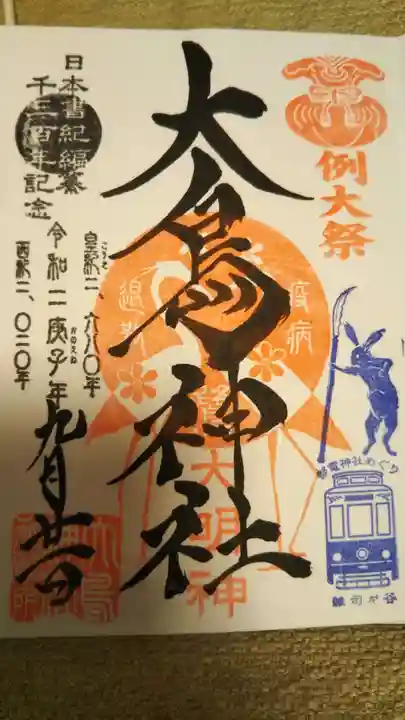 例大祭
大鳥神社
疫病
退散
鷺大明神
日本書紀編纂
千三百年記念
皇紀二、六八〇年
こうき
西暦二、〇二〇年
令和二庚子年
かのえね
九月廿一日
都電神社めぐり
雑司が谷